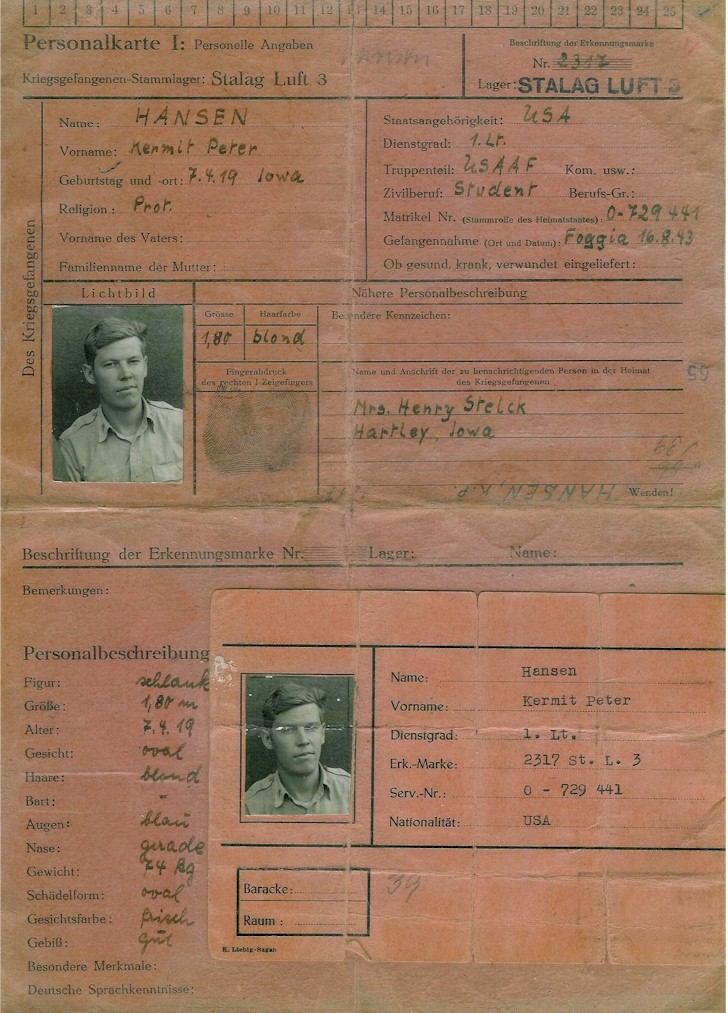 1 2 3 4 5 6 7 8 9 10 11 12 13 14 15 16 17 18 19 20 21 22 23 24 25
Personalkarte I: Personelle Angaben
Kriegsgefangenen-Stammlager: Stalag Luft 3
Beschriftung der Erkennungsmarke
Nr. 2317
Lager: STALAG LUFT 3
Des Kriegsgefangenen
Name: HANSEN
Vorname: Kermit Peter
Geburtstag und -ort: 7.4.19 Iowa
Religion: Prot.
Vorname des Vaters:
Familienname der Mutter:
Staatsangehörigkeit: USA
Dienstgrad: 1. Lt.
Truppenteil: USAAF Kom. usw.:
Zivilberuf: Student Berufs-Gr.:
Matrikel Nr. (Stammrolle des Heimatstaates): O-729 441
Gefangennahme (Ort und Datum): Foggia 16.8.43
Ob gesund, krank, verwundet eingeliefert:
Lichtbild
Nähere Personalbeschreibung
Grösse Haarfarbe
1,80 blond
Besondere Kennzeichen:
Fingerabdruck
des rechten ! Zeigefingers
Name und Anschrift der zu benachrichtigenden Person in der Heimat
des Kriegsgefangenen
Mrs. Henry Stelck
Hartley, Iowa
65
HANSEN, K.P.
Wenden!
Beschriftung der Erkennungsmarke Nr. Lager: Name:
Bemerkungen:
Personalbeschreibung
Figur: schlank
Größe: 1,80 m
Alter: 7.4.19
Gesicht: oval
Haare: blond
Bart: -
Augen: blau
Nase: gerade
Gewicht: 74 kg
Schädelform: oval
Gesichtsfarbe: frisch
Gebiß: gut
Besondere Merkmale:
Deutsche Sprachkenntnisse:
Name: Hansen
Vorname: Kermit Peter
Dienstgrad: 1. Lt.
Erk.-Marke: 2317 St. L. 3
Serv.-Nr.: O - 729 441
Nationalität: USA
Baracke: 39
Raum:
K. Liebig-Sagan